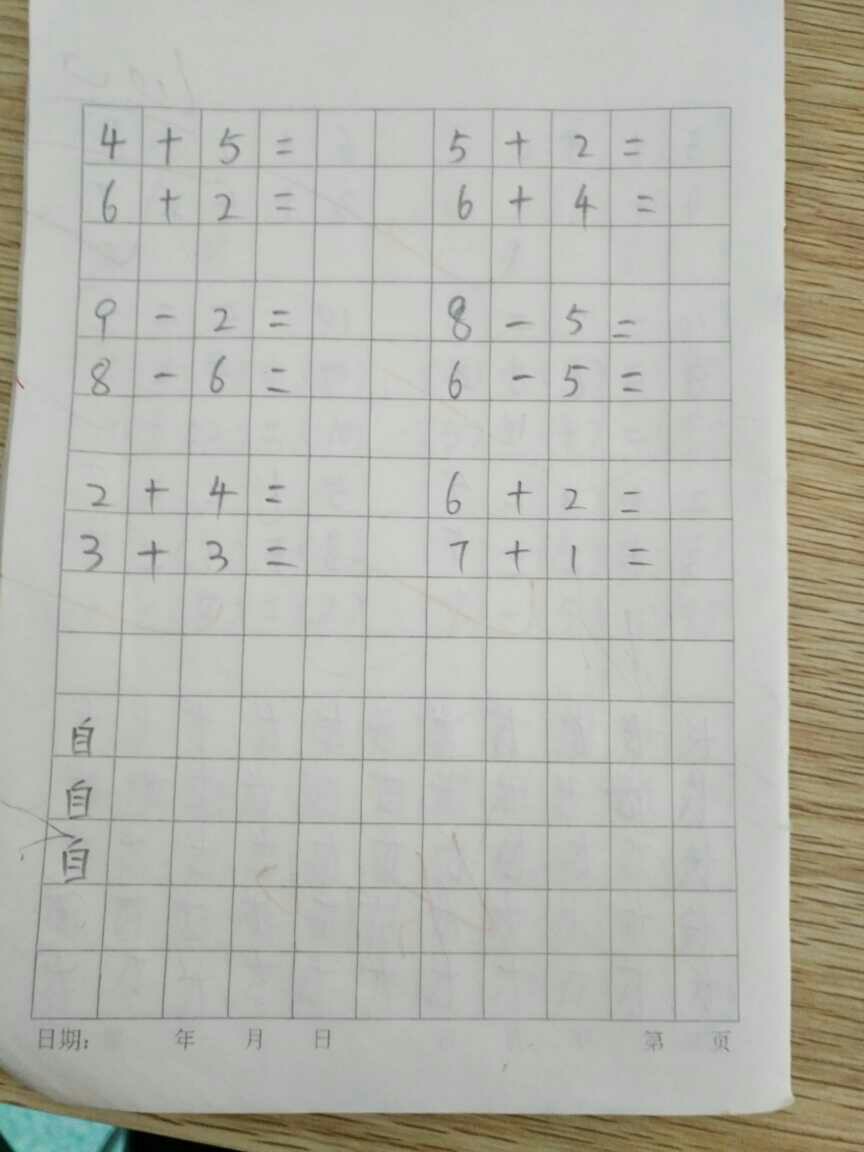 4+5= 5+2=
6+2= 6+4=
9-2= 8-5=
8-6= 6-5=
2+4= 6+2=
3+3= 7+1=
自
自
自
日期: 年 月 日 第 页